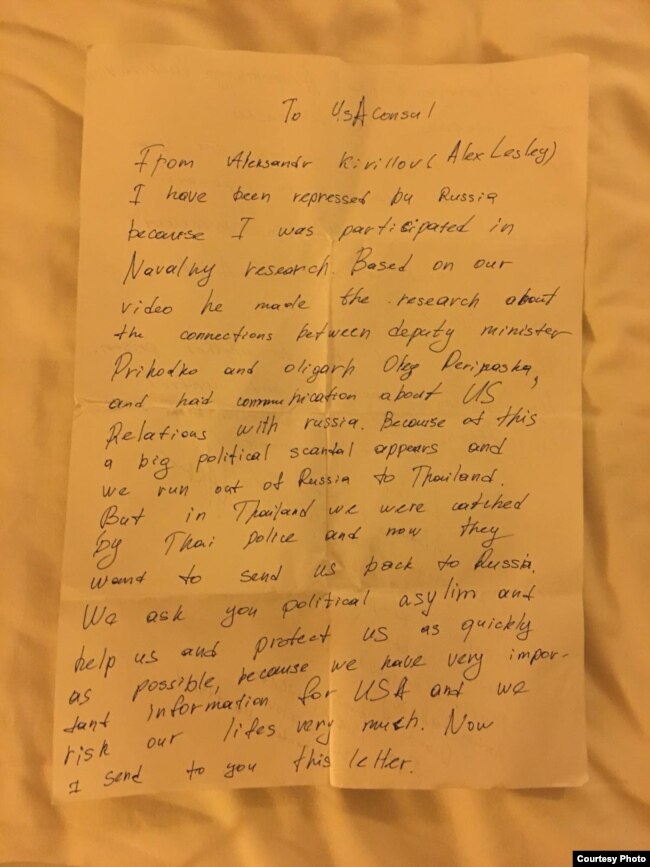 To USA Consul
From Aleksandr Kirillov (Alex Lesley)
I have been repressed by Russia
because I was participated in
Navalny research. Based on our
video he made the research about
the connections between deputy minister
Prihodko and oligarh Oleg Deripaska,
and had communication about US
Relations with russia. Because of this
a big political scandal appears and
we run out of Russia to Thailand.
But in Thailand we were catched
by Thai police and now they
want to send us back to Russia.
We ask you political asylim and
help us and protect us as quickly
as possible, because we have very impor-
tant information for USA and we
risk our lifes very much. Now
I send to you this letter.
Courtesy Photo